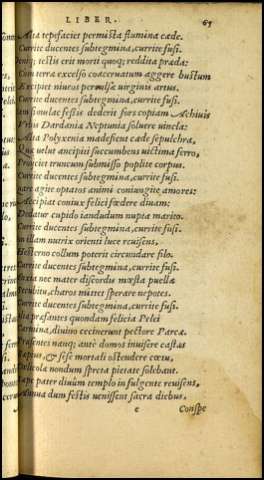 LIBER. 65
Alta tepefaciet permista flumina cæde.
Currite ducentes subtegmina, currite fusi.
Deniq; testis erit morti quoq; reddita præda:
Cum terra excelso coaceruatum aggere bustum
Excipiet niueos perculsæ uirginis artus.
Currite ducentes subtegmina, currite fusi.
Nam simulac fessis dederit fors copiam Achiuis
Vrbis Dardaniæ Neptunia soluere uincla:
Alta Polyxenia madefient cæde sepulchra,
Quæ uelut ancipiti succumbens uictima ferro,
Proijciet truncum submisso poplite corpus.
Currite ducentes subtegmina, currite fusi.
Quare agite optatos animi coniungite amores:
Accipiat coniux felici fœdere diuam:
Dedatur cupido tandudum nupta marito.
Currite ducentes subtegmina, currite fusi.
Non illam nutrix orienti luce reuisens,
Hesterno collum poterit circundare filo.
Currite ducentes subtegmina, currite fusi.
Anxia nec mater discordis mœsta puellæ
Secubitu, charos mittet sperare nepotes.
Currite ducentes subtegmina, currite fusi.
Talia præfantes quondam felicia Pelei
Carmina, diuino cecinerunt pectore Parcæ.
Præsentes nanq; antè domos inuisere castas
Sæpius, & sese mortali ostendere cœtu,
Cælicolæ nondum spreta pietate solebant.
Sæpe pater diuûm templo in fulgente reuisens,
Annua dum festis uenissent sacra diebus,
e Conspe